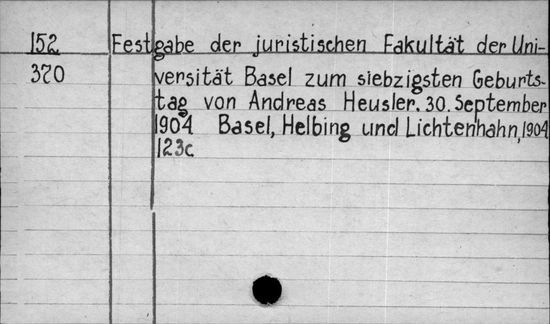 152 Festgabe der juristischen Fakultät der Uni-
370 versität Basel zum siebzigsten Geburts-
tag von Andreas Heusler. 30. September
1904 Basel, Helbing und Lichtenhahn, 1904
123c